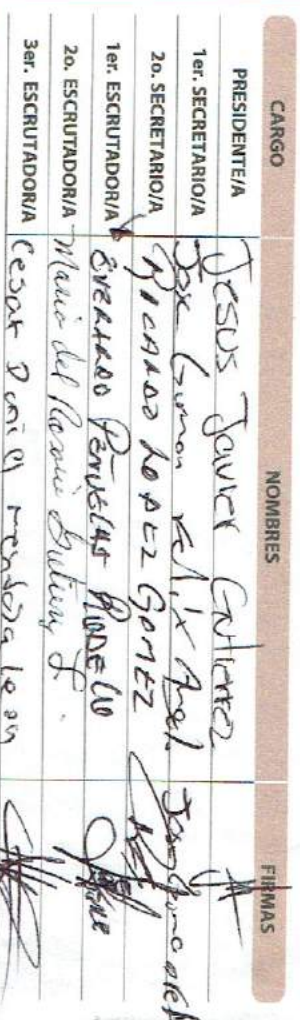 CARGO NOMBRES FIRMAS
PRESIDENTE/A Jesus Javier Gutierrez
1er. SECRETARIO/A Jose Guman Felix Angel
2o. SECRETARIO/A RICARDO LOPEZ GOMEZ
1er. ESCRUTADOR/A EVERARDO
2o. ESCRUTADOR/A Maria del Rosario
3er. ESCRUTADOR/A Cesar Daniel mendoza leon